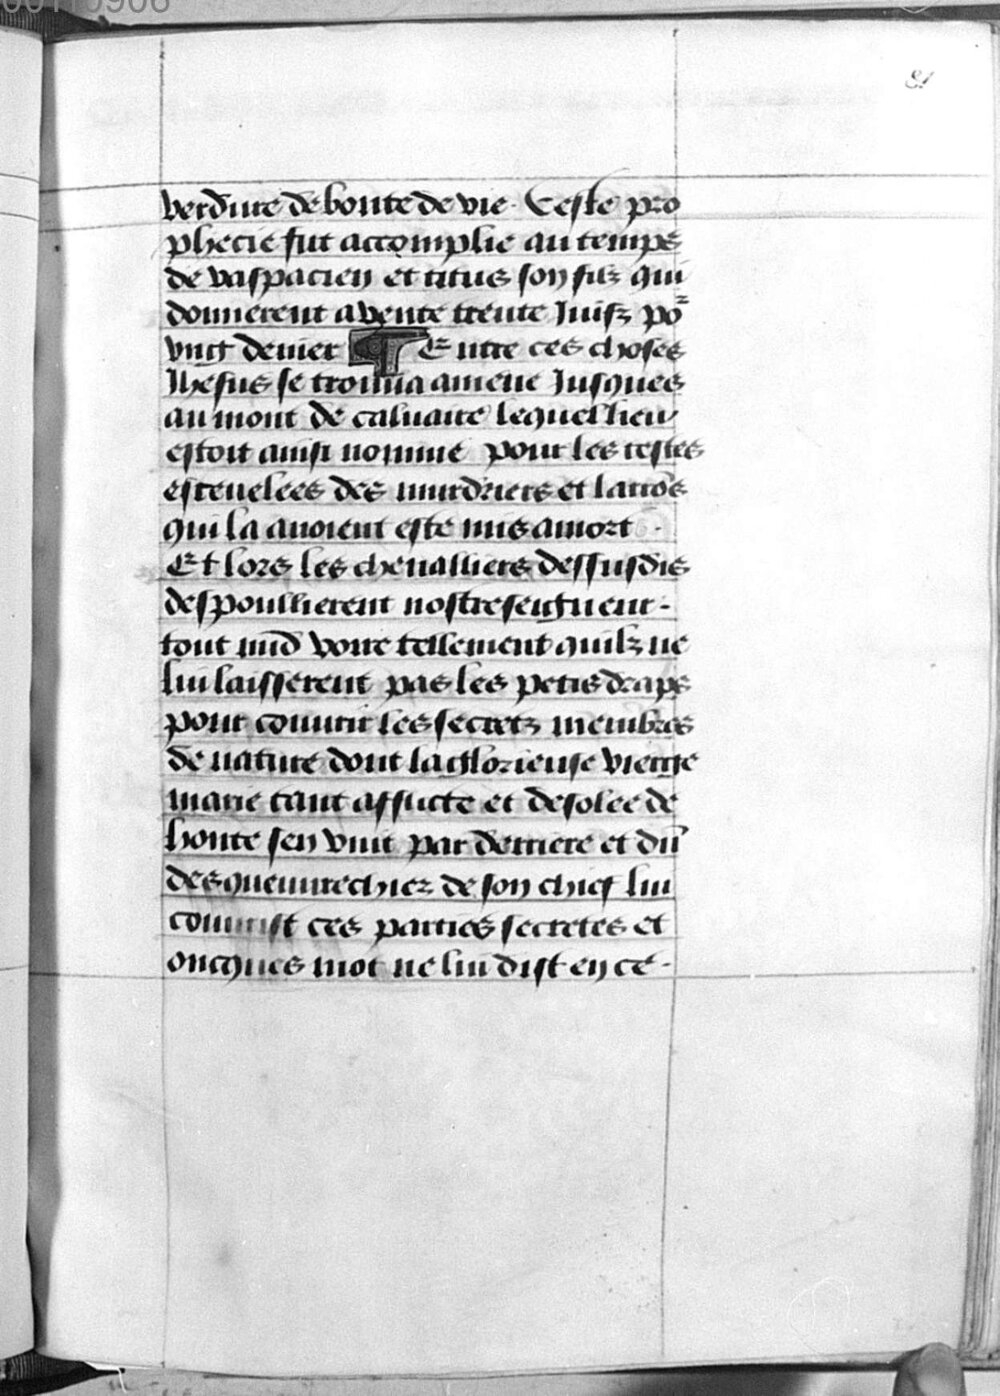 00110908
81
verdure de bonte de vie. Ceste pro
phecie fut accomplie au temps
de vaspacien et titus son filz qui
donnerent a vente trente Juifz po2
ung denier ¶ Entre ces choses
Jhesus se trouua amene Jusques
au mont de caluaire lequel lieu
estoit ainsi nomme pour les testes
esceruelees des murdriers et larrõs
qui la auoient este mis a mort .
Et lors les cheualliers dessusdis
despoullierent nostre seigneur .
tout nud voire tellement quilz ne
lui laisserent pas les petis draps
pour couurir les secretz membres
de nature dont la glorieuse vierge
marie tant afflicte et desolee de
honte sen vint par derriere et dũ
des queuurechiez de son chief lui
couurist ces parties secretes et
oncques mot ne lui dist en ce .